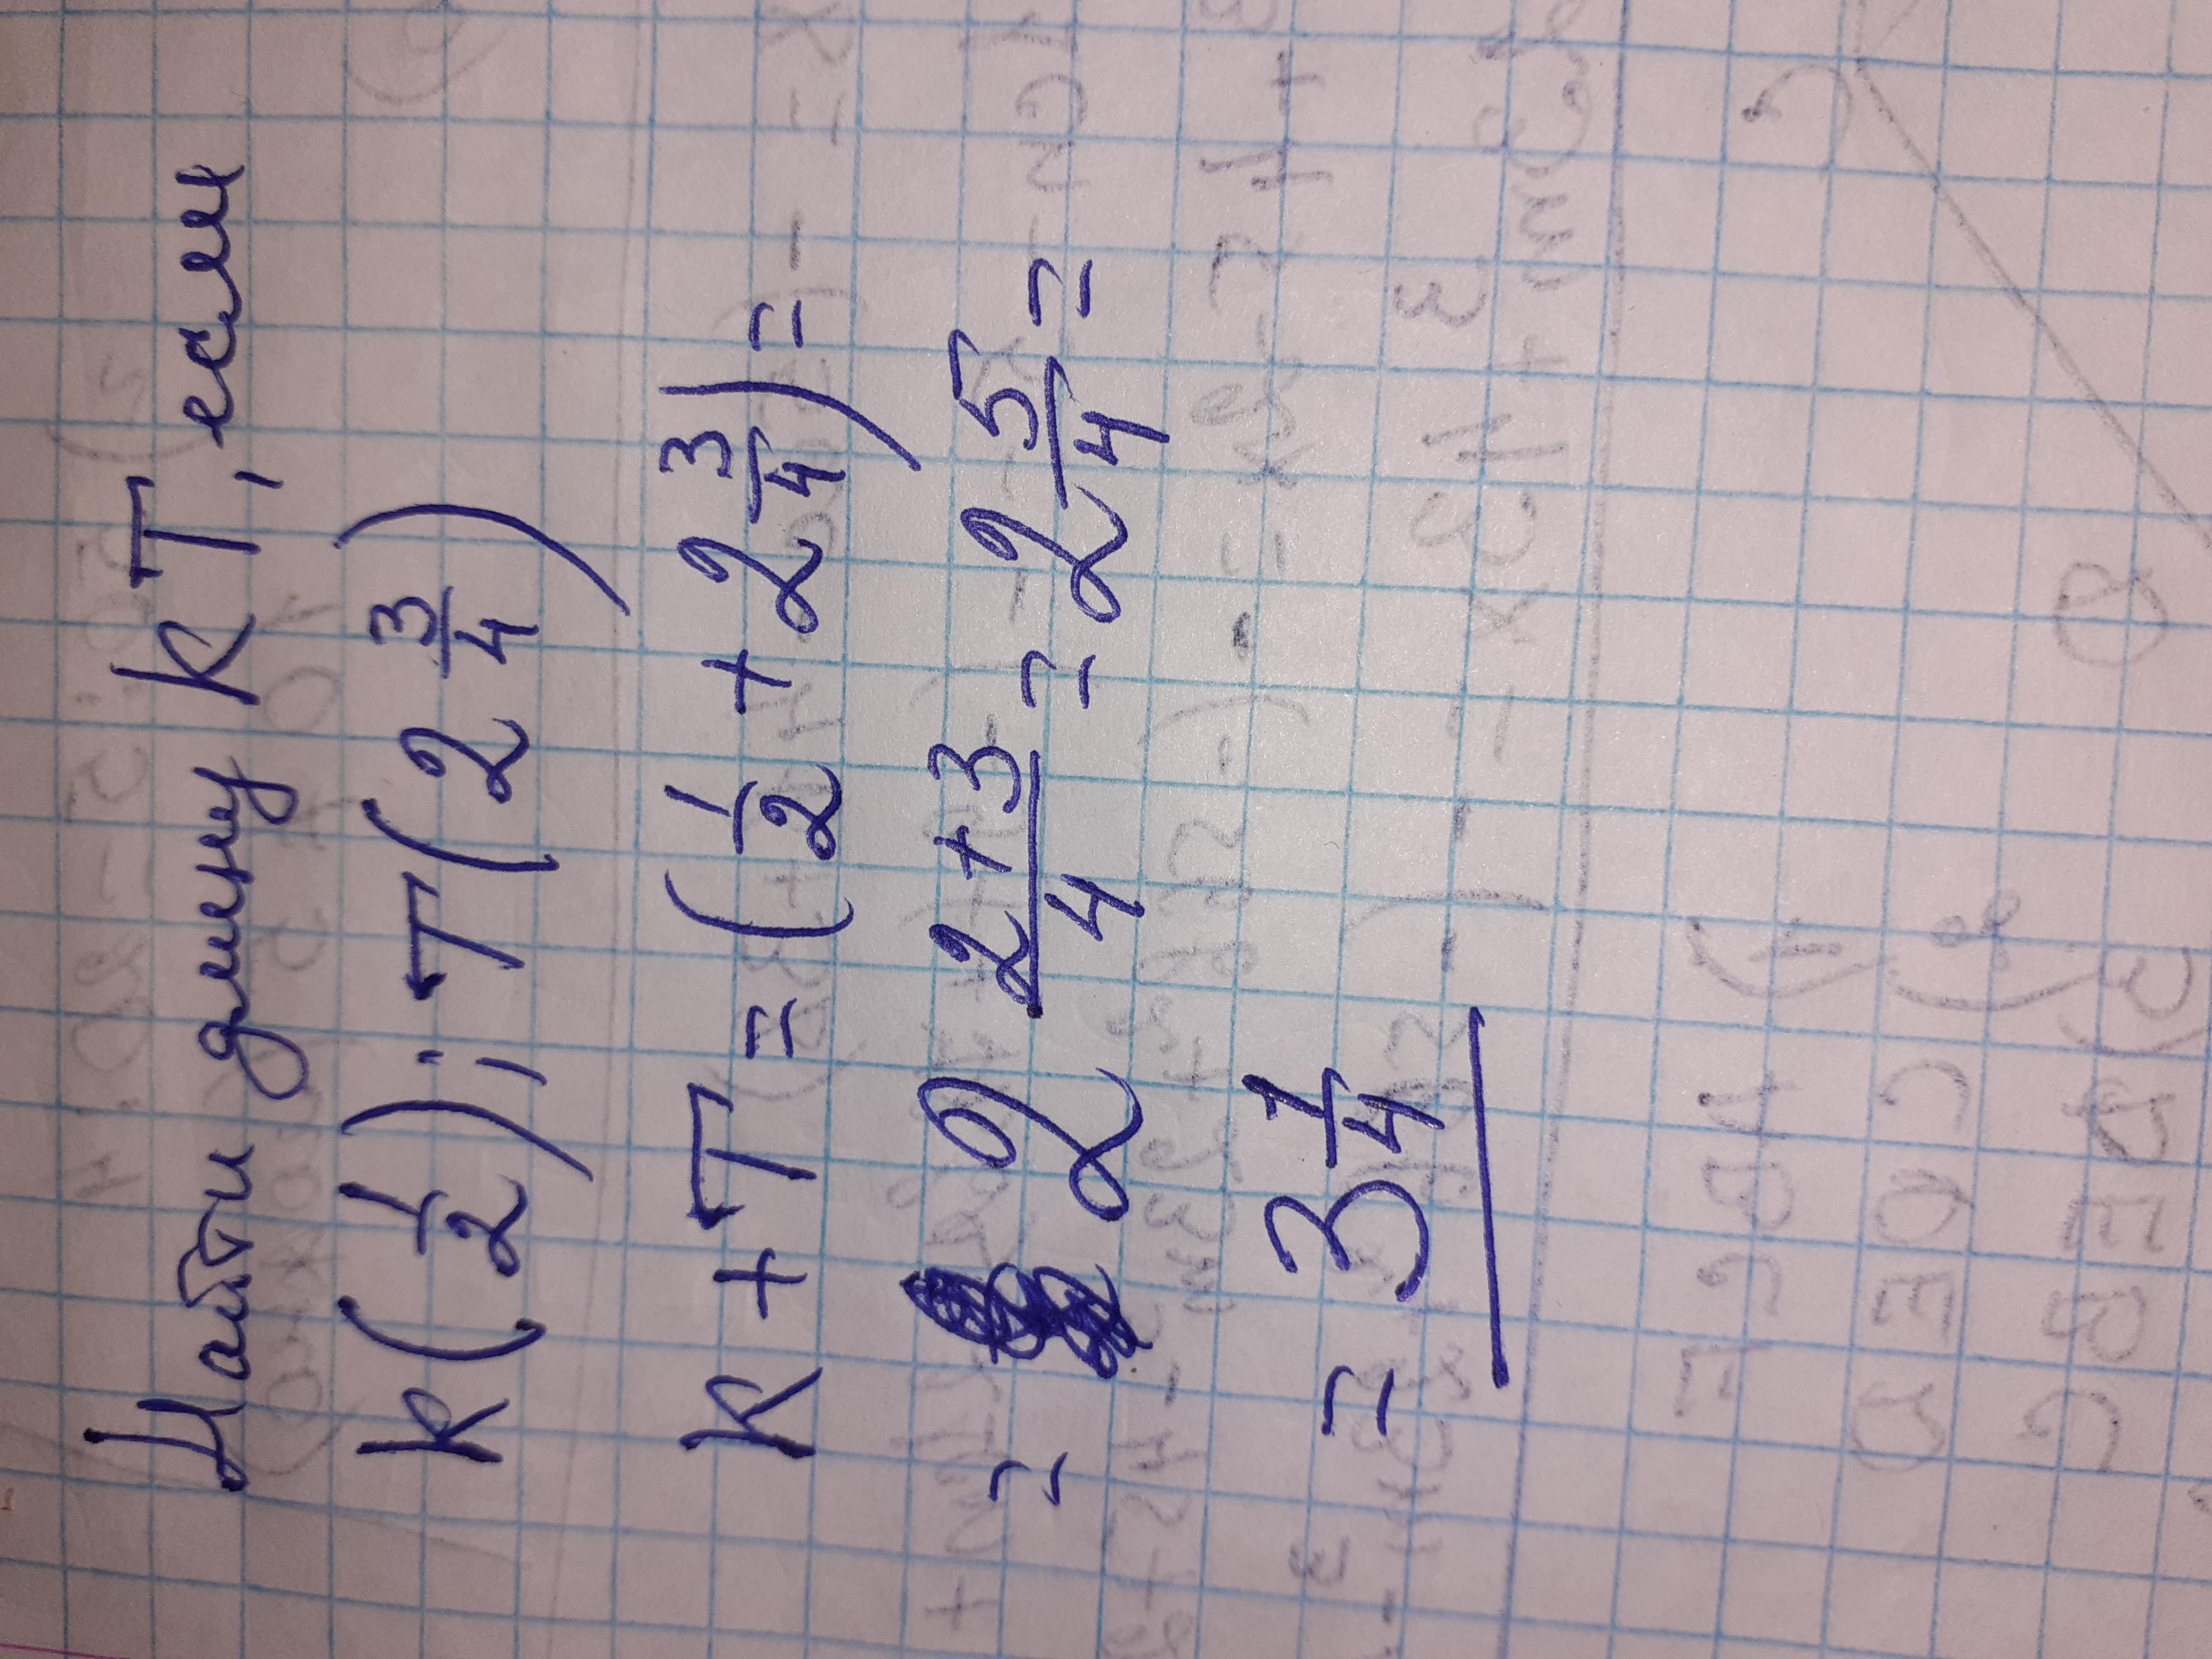 Найти длину KT, если
K(1/2); T(2 3/4)
K+T=(1/2+2 3/4)=
= 2 2+3/4 = 2 5/4 =
= 3 1/4